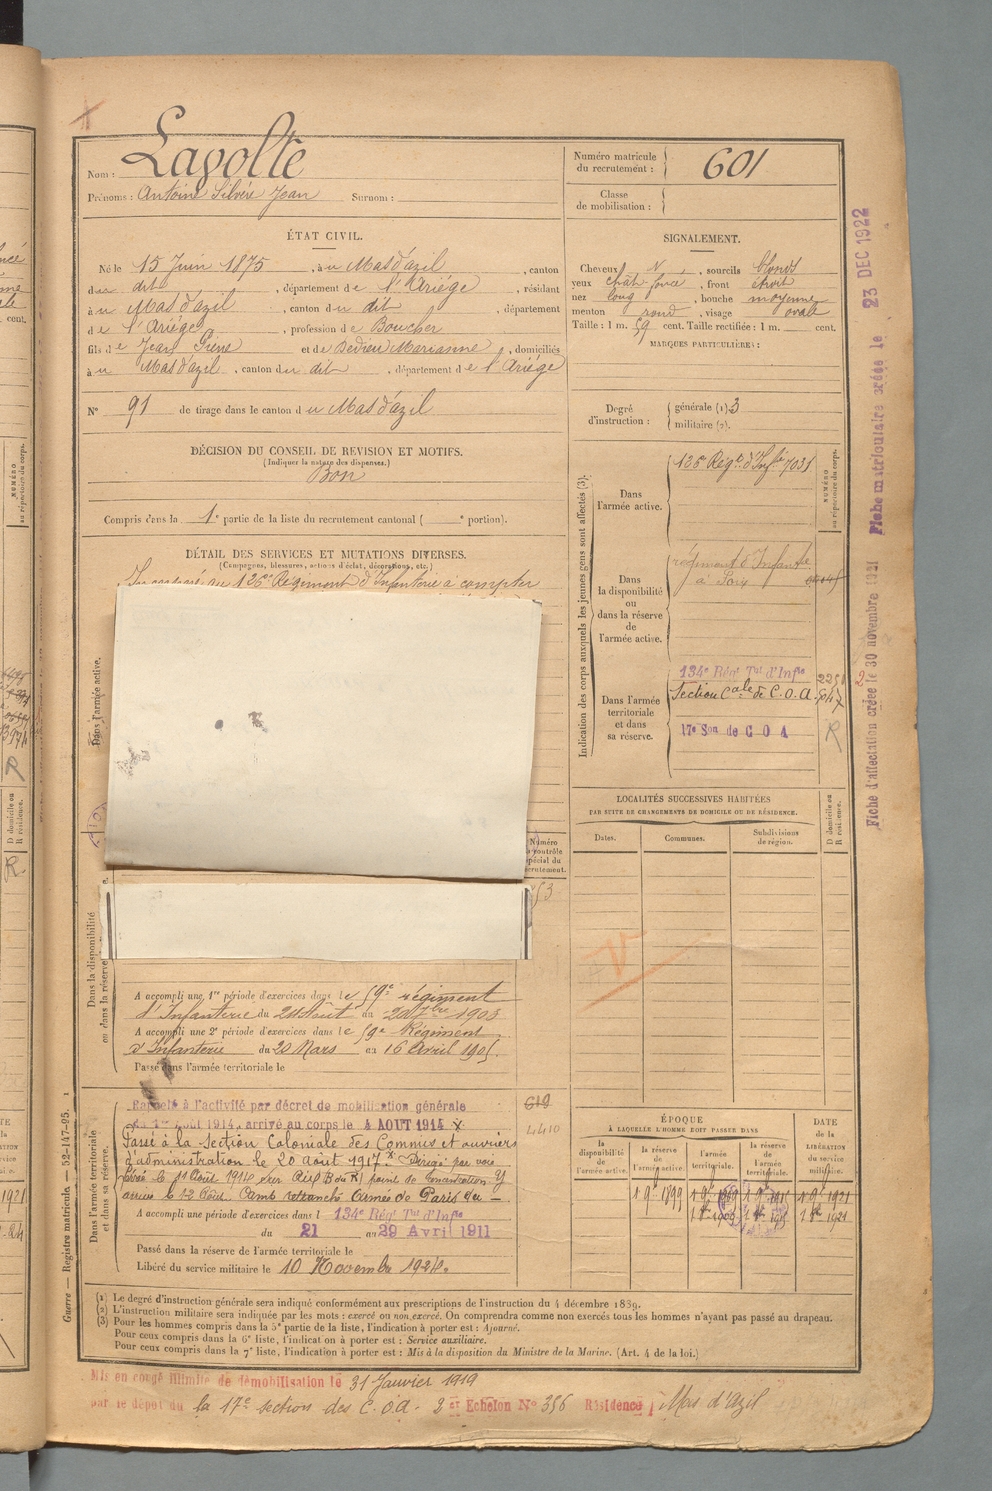 Nom : Lavolte
Prénoms : Antoine Silvère Jean Surnom :
Numéro matricule du recrutement : 601
Classe de mobilisation :
ÉTAT CIVIL.
Né le 15 Juin 1875, à u Mas d'azil, canton
du dit, département de l'Ariège, résidant
à u Mas d'azil, canton du dit, département
de l'Ariège, profession de Boucher
fils de Jean Pierre et de Dedieu Marianne, domiciliés
à u Mas d'azil, canton du dit, département de l'Ariège
N° 91 de tirage dans le canton du Mas d'azil
SIGNALEMENT.
Cheveux N, sourcils blonds
yeux chât. foncé, front étroit
nez long, bouche moyenne
menton rond, visage ovale
Taille : 1 m. 59 cent. Taille rectifiée : 1 m. cent.
MARQUES PARTICULIÈRES :
Degré d'instruction : générale (1) 3
militaire (2).
DÉCISION DU CONSEIL DE REVISION ET MOTIFS.
(Indiquer la nature des dispenses.)
Bon
Compris dans la 1e partie de la liste du recrutement cantonal ( e portion).
DÉTAIL DES SERVICES ET MUTATIONS DIVERSES.
(Campagnes, blessures, actions d'éclat, décorations, etc.)
Incorporé au 126e Régiment d'Infanterie à compter
Dans l'armée active.
Numéro au contrôle spécial du recrutement.
Dans la disponibilité ou dans la réserve
A accompli une 1re période d'exercices dans le 59e régiment
d'Infanterie du 24 Août au 20 7bre 1903
A accompli une 2e période d'exercices dans le 59e Régiment
d'Infanterie du 20 Mars au 16 Avril 1905.
Passé dans l'armée territoriale le
Dans l'armée territoriale et dans sa réserve.
Rappelé à l'activité par décret de mobilisation générale
du 1er Août 1914, arrivé au corps le 4 AOUT 1914 X
Passé à la Section Coloniale des Commis et ouvriers
d'administration le 20 Août 1917. X Dirigé par voie
ferrée le 11 Août 1914 sur
arrivé le 12 Août. Camp retranché Armée de Paris du —
619
4410
A accompli une période d'exercices dans l 134e Régt Tal d'Infie
du 21 au 29 Avril 1911
Passé dans la réserve de l'armée territoriale le
Libéré du service militaire le 10 Novembre 1924.
Indication des corps auxquels les jeunes gens sont affectés (3).
NUMÉRO au répertoire du corps.
Dans l'armée active.
126e Régt d'Infie 7031
Dans la disponibilité ou dans la réserve de l'armée active.
régiment d'Infanterie
à Foix
Dans l'armée territoriale et dans sa réserve.
134e Régt Tal d'Infie
Section Cale de C.O.A.
17e Son de C O A R
LOCALITÉS SUCCESSIVES HABITÉES
PAR SUITE DE CHANGEMENTS DE DOMICILE OU DE RÉSIDENCE.
Dates. Communes. Subdivisions de région. D domicile ou R résidence.
ÉPOQUE
À LAQUELLE L'HOMME DOIT PASSER DANS
la disponibilité de l'armée active. la réserve de l'armée active. l'armée territoriale. la réserve de l'armée territoriale.
DATE de la LIBÉRATION du service militaire.
1 9bre 1899
Guerre — Registre matricule. — 52-147-95. 1
(1) Le degré d'instruction générale sera indiqué conformément aux prescriptions de l'instruction du 4 décembre 1889.
(2) L'instruction militaire sera indiquée par les mots : exercé ou non exercé. On comprendra comme non exercés tous les hommes n'ayant pas passé au drapeau.
(3) Pour les hommes compris dans la 5e partie de la liste, l'indication à porter est : Ajourné.
Pour ceux compris dans la 6e liste, l'indication à porter est : Service auxiliaire.
Pour ceux compris dans la 7e liste, l'indication à porter est : Mis à la disposition du Ministre de la Marine. (Art. 4 de la loi.)
Mis en congé illimité de démobilisation le 31 Janvier 1919
par le dépôt du la 17e section des C.O.A. 2 er Echelon N° 356 Résidence Mas d'Azil
Fiche d'affectation créée le 30 novembre 1921
Fiche matriculaire créée le 23 DEC 1922